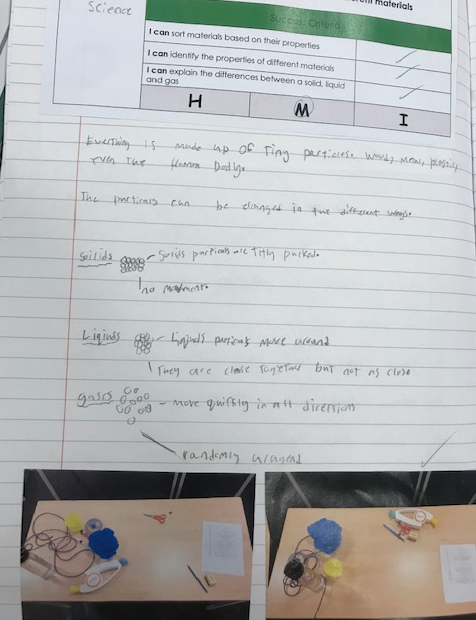 materials
Science
Success Criteria
I can sort materials based on their properties
I can identify the properties of different materials
I can explain the differences between a solid, liquid
and gas
H M I
Everything is made up of Tiny particles. Wood, Metal, plastic,
even the Human Body.
The particals can be changed in the different ways.
Solids Solids particals are Titly packed.
no movement.
Liqiuds Liqiuds particals move around
They are close together but not as close
gases - move quilkly in all directions
randomly